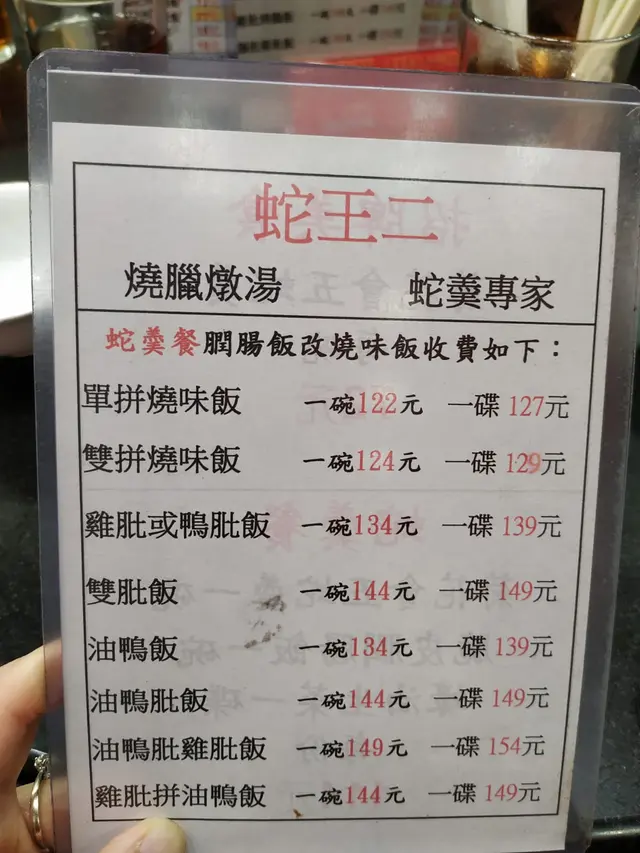 蛇王二
燒臘燉湯 蛇羹專家
蛇羹餐膶腸飯改燒味飯收費如下：
單拼燒味飯 一碗122元 一碟127元
雙拼燒味飯 一碗124元 一碟129元
雞肶或鴨肶飯 一碗134元 一碟139元
雙肶飯 一碗144元 一碟149元
油鴨飯 一碗134元 一碟139元
油鴨肶飯 一碗144元 一碟149元
油鴨肶雞肶飯 一碗149元 一碟154元
雞肶拼油鴨飯 一碗144元 一碟149元